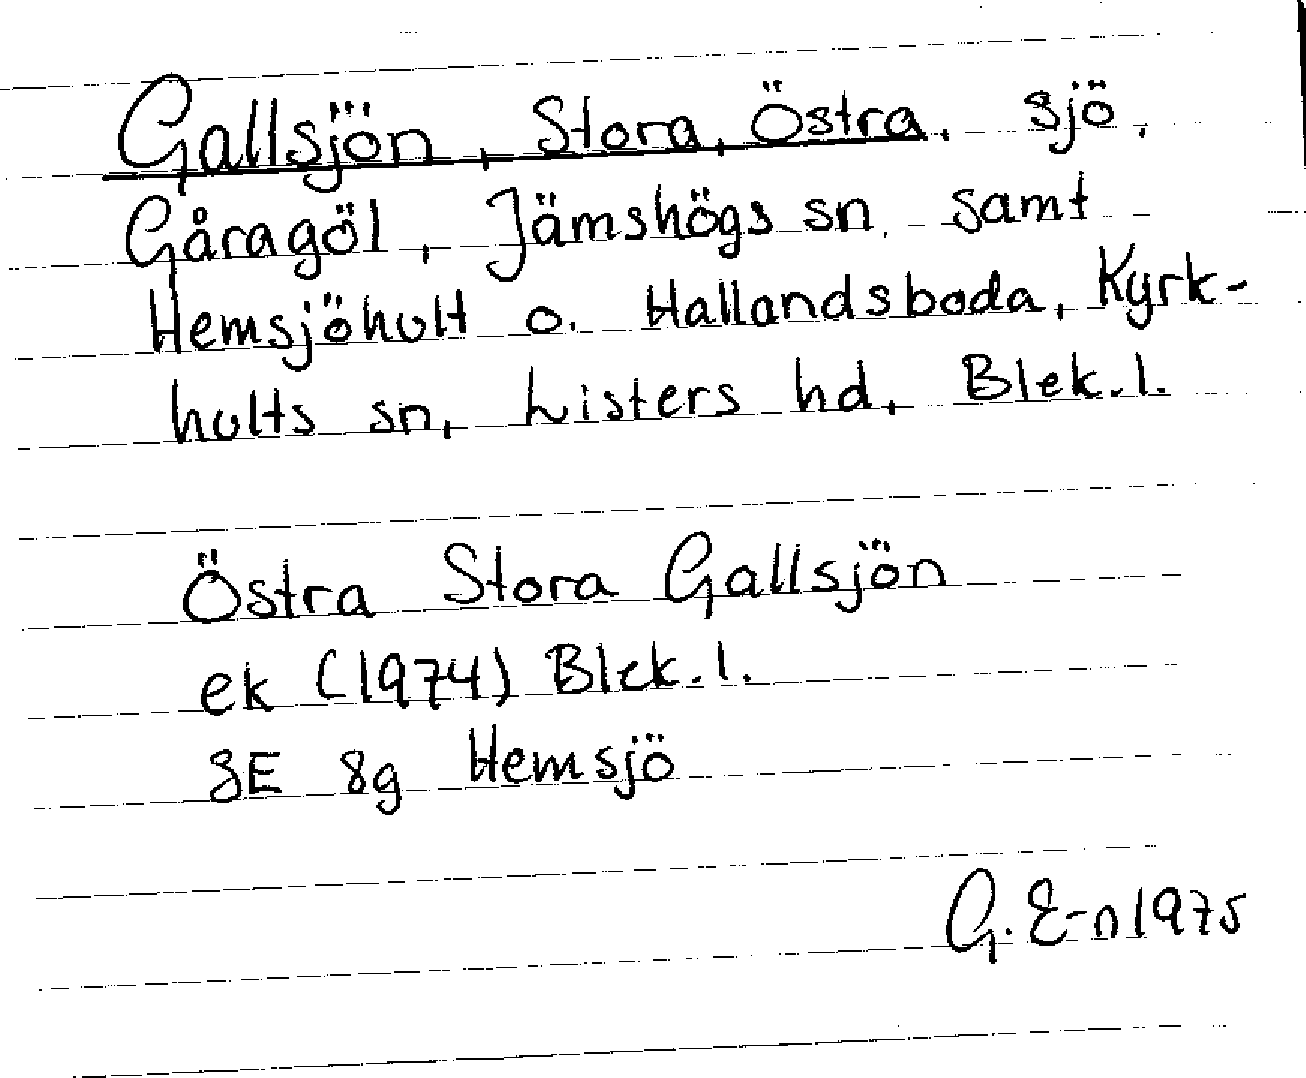 Gallsjön, Stora, Östra, sjö,
Gåragöl, Jämshögs sn, samt
Hemsjöhult o. Hallandsboda, Kyrk-
hults sn, Listers hd, Blek. l.
Östra Stora Gallsjön
ek (1974) Blek. l.
3E 8g Hemsjö
G. E-n 1975